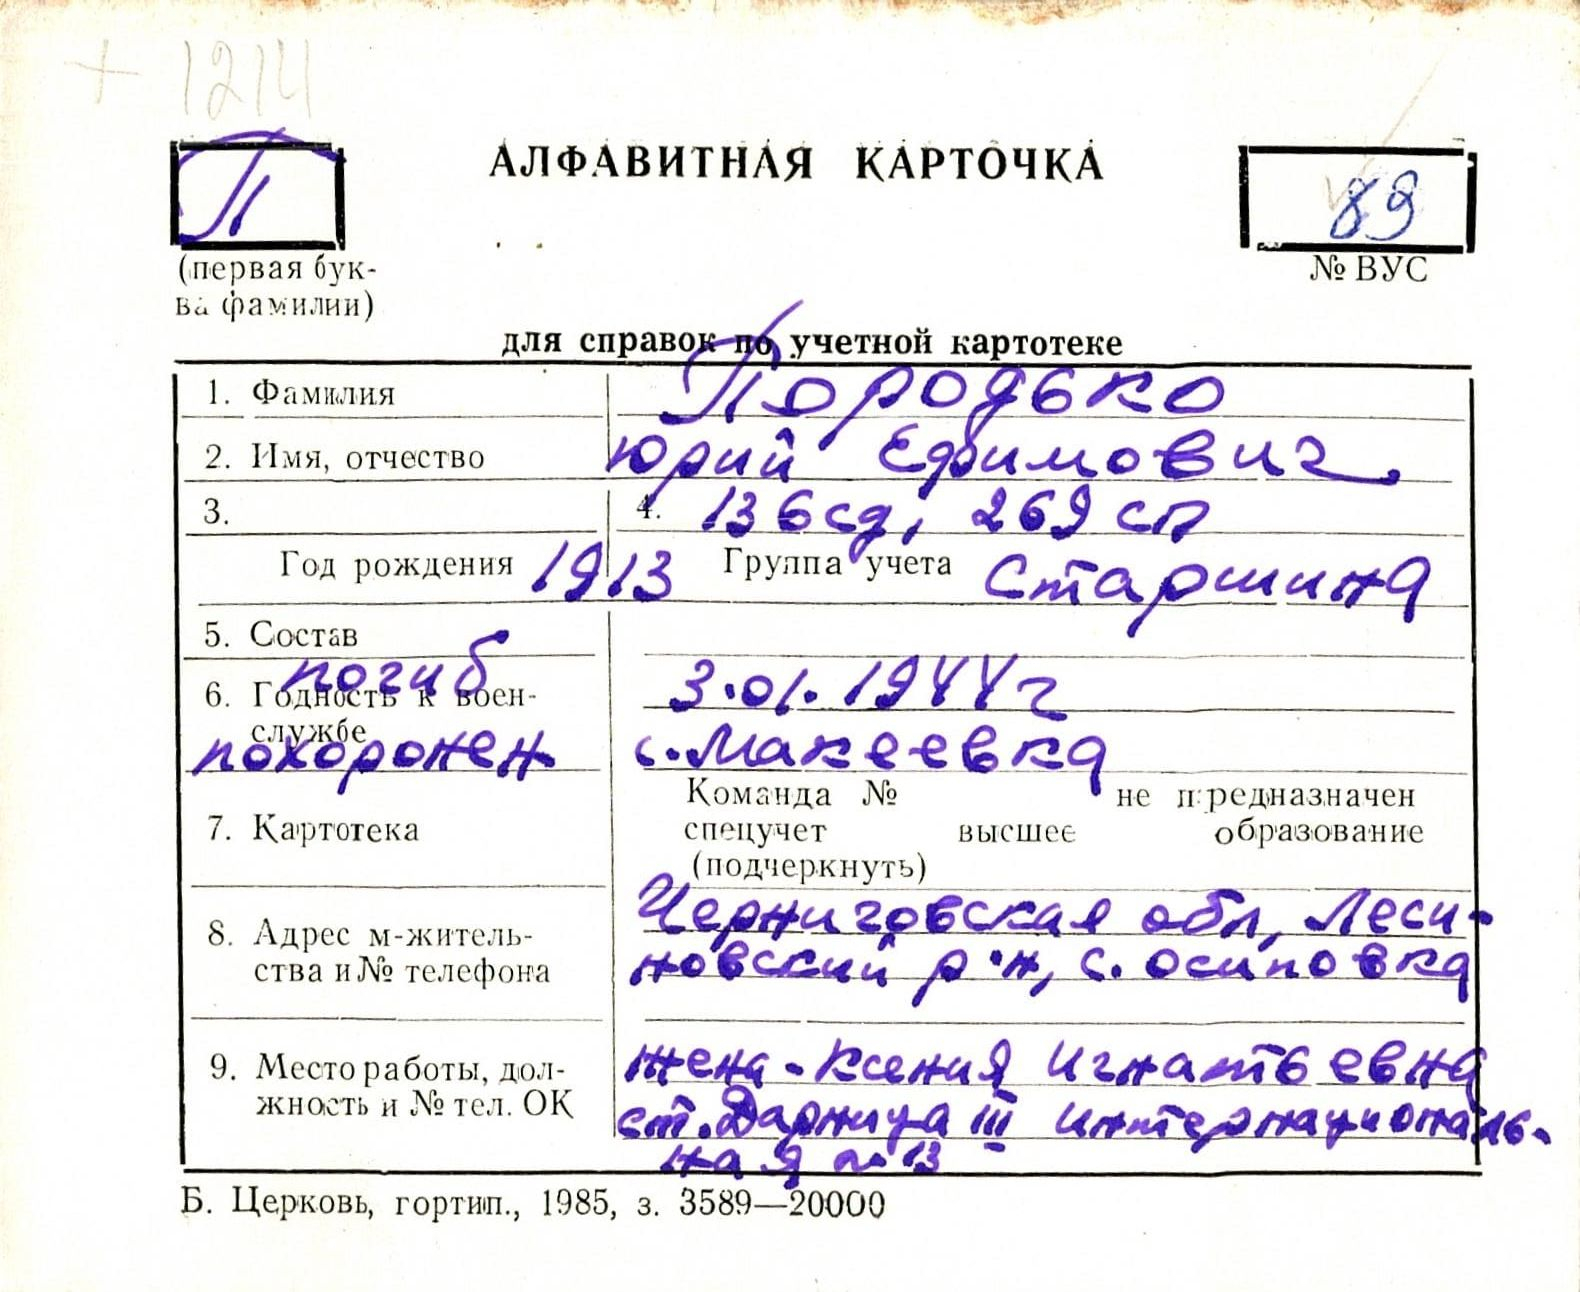 + 1214
П
АЛФАВИТНАЯ КАРТОЧКА
89
(первая бук-
ва фамилии)
№ ВУС
для справок по учетной картотеке
1. Фамилия Породько
2. Имя, отчество Юрий Ефимович.
3. 4. 136 сд, 269 сп
Год рождения 1913 Группа учета Старшина
5. Состав
погиб 3.01.1944 г
6. Годность к воен-
службе
похоронен с. Макеевка
Команда № не предназначен
7. Картотека спецучет высшее образование
(подчеркнуть)
Черниговская обл, Леси-
8. Адрес м-житель- новский р-н, с. Осиповка
ства и № телефона
9. Место работы, дол- жена - Ксения Игнатьевна
жность и № тел. ОК ст. Дарница III интернациональ-
ная № 13
Б. Церковь, гортип., 1985, з. 3589—20000